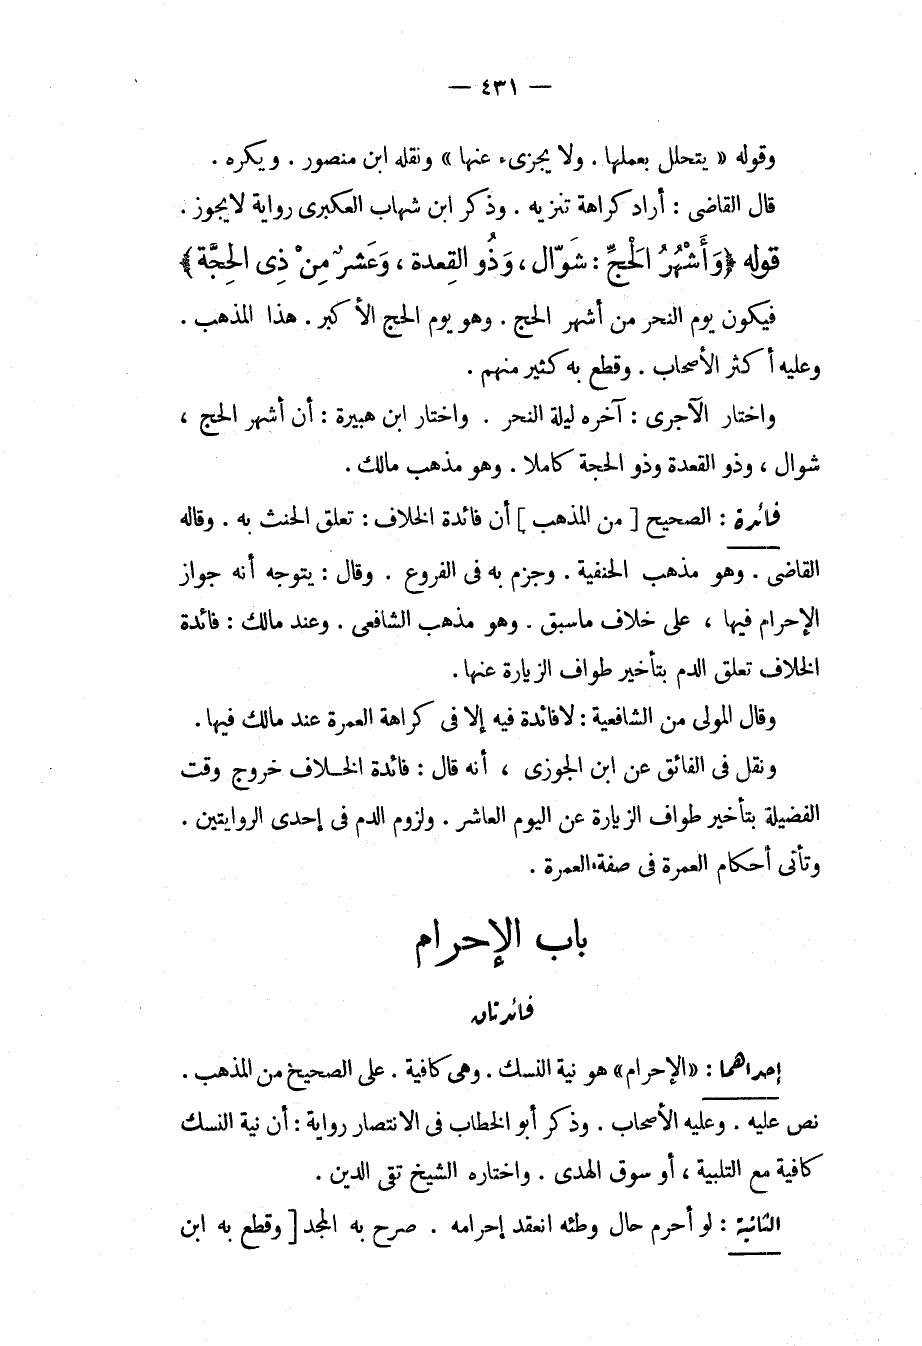 — ٤٣١ —
وقوله « يتحلل بعملها . ولا يجزىء عنها » ونقله ابن منصور . ويكره .
قال القاضى : أراد كراهة تنزيه . وذكر ابن شهاب العكبرى رواية لايجوز .
قوله ﴿وَأَشْهُرُ الْحَجِّ : شَوّال ، وَذُو القِعدة ، وَعَشرٌ مِنْ ذِى الحِجَّة﴾
فيكون يوم النحر من أشهر الحج . وهو يوم الحج الأكبر . هذا المذهب .
وعليه أكثر الأصحاب . وقطع به كثير منهم .
واختار الآجرى : آخره ليلة النحر . واختار ابن هبيرة : أن أشهر الحج ،
شوال ، وذو القعدة وذو الحجة كاملا . وهو مذهب مالك .
فائدة : الصحيح [ من المذهب ] أن فائدة الخلاف : تعلق الحنث به . وقاله
القاضى . وهو مذهب الحنفية . وجزم به فى الفروع . وقال : يتوجه أنه جواز
الإحرام فيها ، على خلاف ماسبق . وهو مذهب الشافعى . وعند مالك : فائدة
الخلاف تعلق الدم بتأخير طواف الزيارة عنها .
وقال المولى من الشافعية : لافائدة فيه إلا فى كراهة العمرة عند مالك فيها .
ونقل فى الفائق عن ابن الجوزى ، أنه قال : فائدة الخلاف خروج وقت
الفضيلة بتأخير طواف الزيارة عن اليوم العاشر . ولزوم الدم فى إحدى الروايتين .
وتأتى أحكام العمرة فى صفة العمرة .
باب الإحرام
فائدتان
إحداهما : «الإحرام» هو نية النسك . وهى كافية . على الصحيح من المذهب .
نص عليه . وعليه الأصحاب . وذكر أبو الخطاب فى الانتصار رواية : أن نية النسك
كافية مع التلبية ، أو سوق الهدى . واختاره الشيخ تقى الدين .
الثانية : لو أحرم حال وطئه انعقد إحرامه . صرح به المجد [ وقطع به ابن